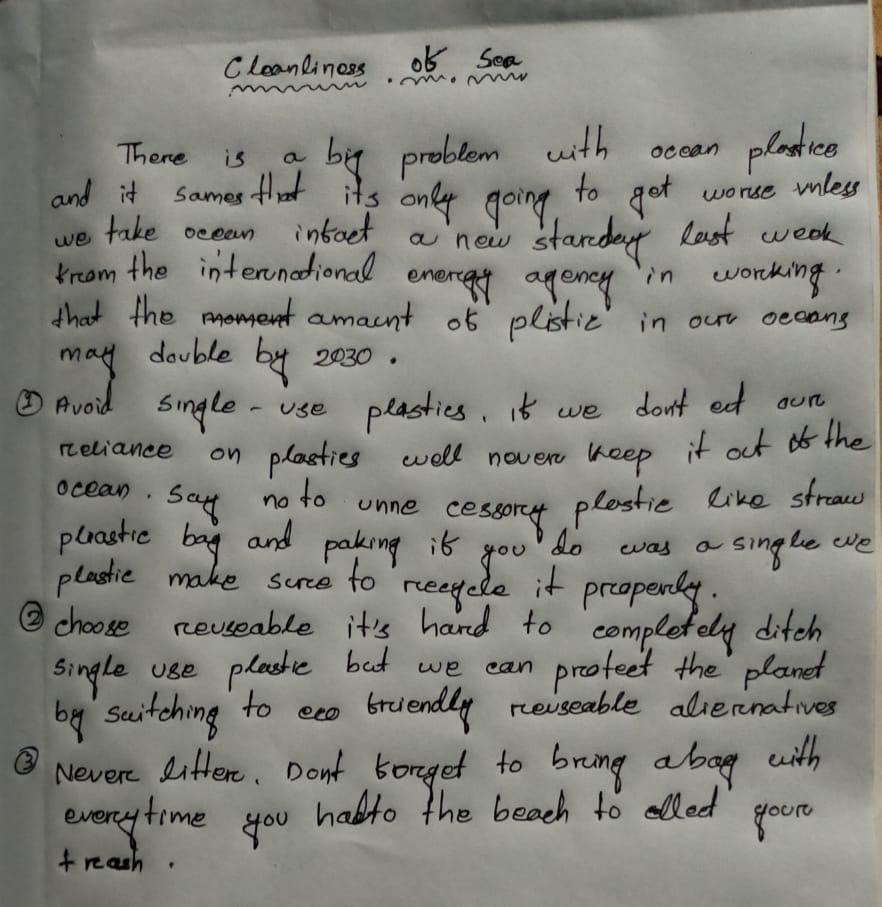 Cleanliness of Sea
There is a big problem with ocean plastics
and it sames that its only going to get worse unless
we take ocean intact a new stardey last week
from the international energy agency in working.
that the moment amount of plistic in our oceans
may double by 2030.
① Avoid single-use plastics. if we dont ect our
reliance on plasties well never keep it out of the
ocean. Say no to unne cessory plastic like straw
plastic bag and paking if you do was a single use
plastic make sure to recycle it properly.
② choose reuseable it's hard to completely ditch
single use plastic but we can protect the planet
by switching to eco friendly reuseable aliernatives
③ Never litter. Dont forget to bring abag with
everytime you habto the beach to your
trash.